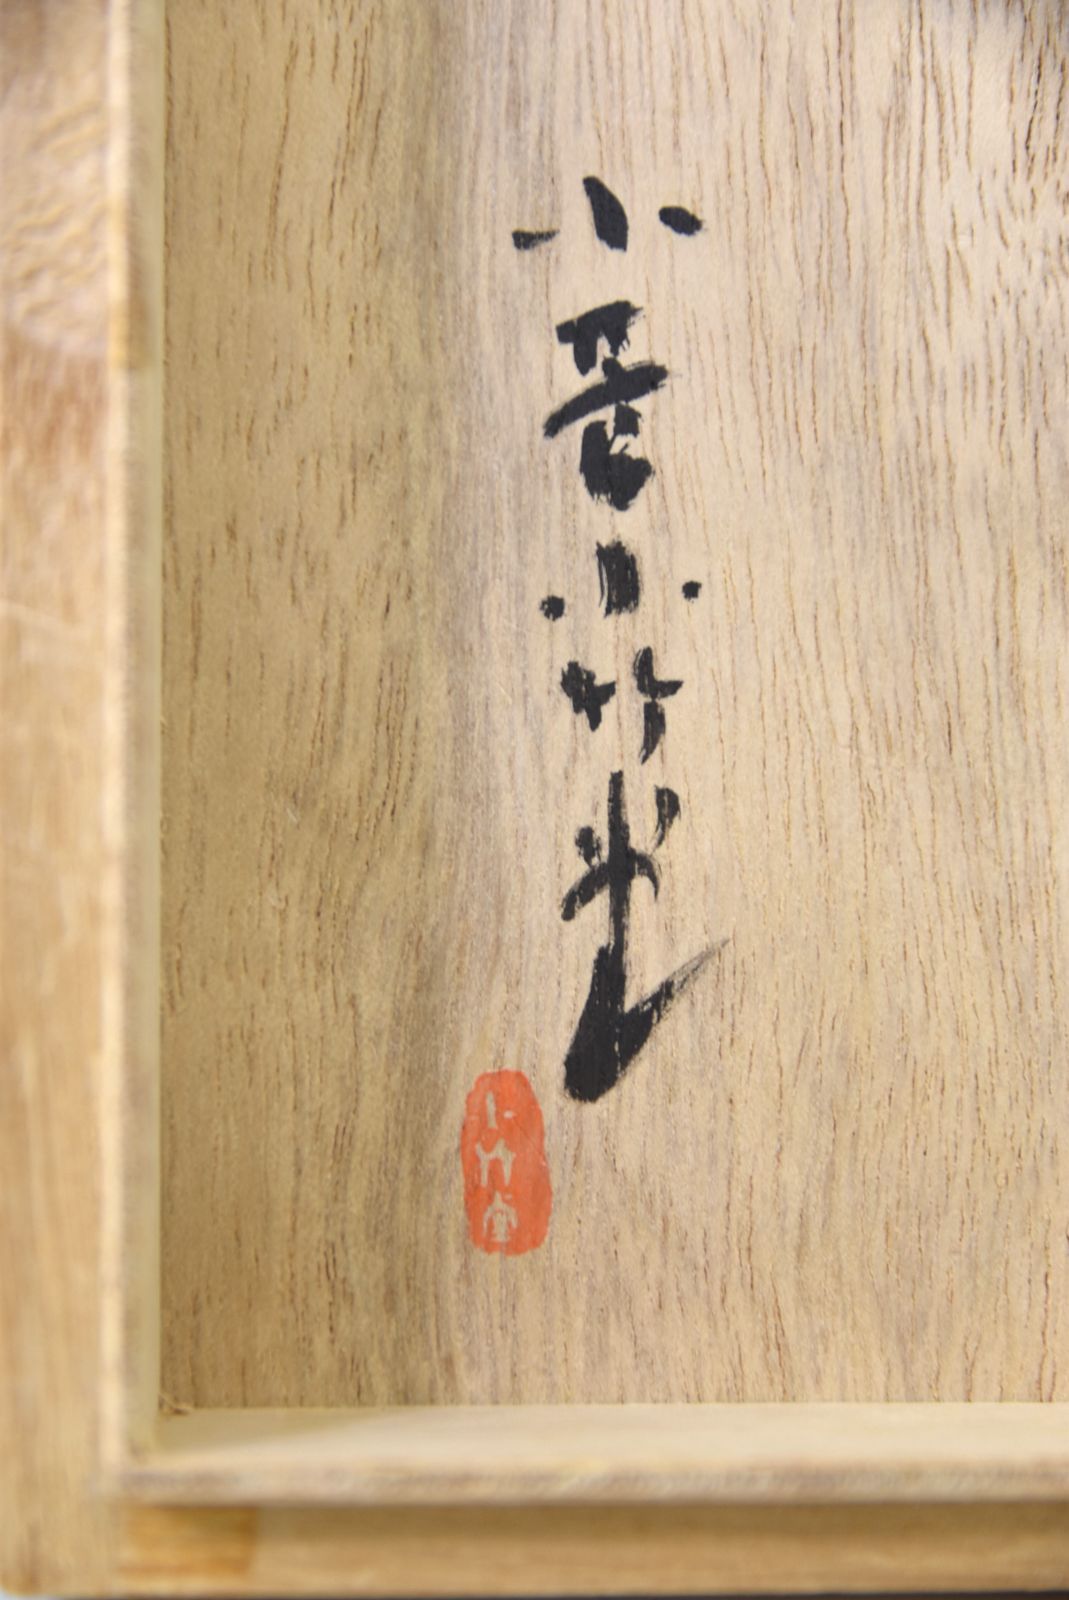 小菅小竹堂
小竹堂